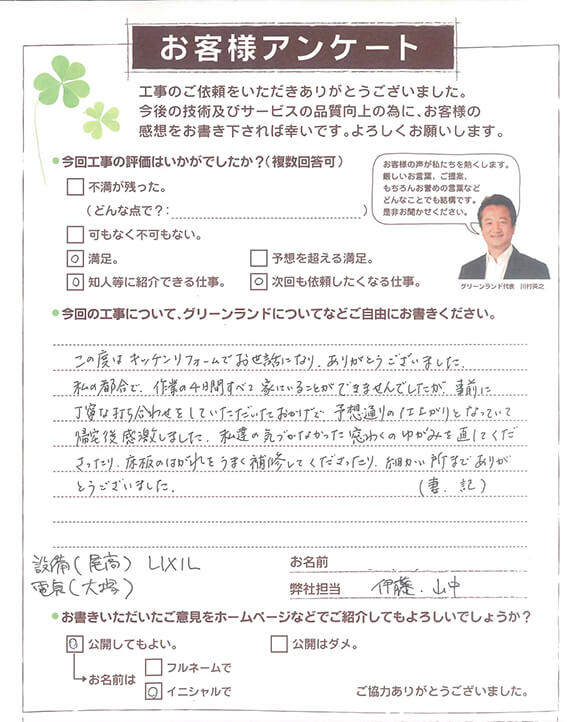 お客様アンケート
工事のご依頼をいただきありがとうございました。
今後の技術及びサービスの品質向上の為に、お客様の
感想をお書き下されば幸いです。よろしくお願いします。
●今回工事の評価はいかがでしたか？（複数回答可）
お客様の声が私たちを熱くします。
厳しいお言葉、ご提案、
もちろんお誉めの言葉など
どんなことでも結構です。
是非お聞かせください。
グリーンランド代表 川村英之
□不満が残った。
（どんな点で？：　）
□可もなく不可もない。
☐満足。 □予想を超える満足。
☐知人等に紹介できる仕事。 ☐次回も依頼したくなる仕事。
●今回の工事について、グリーンランドについてなどご自由にお書きください。
この度はキッチンリフォームでお世話になり、ありがとうございました。
私の都合で、作業の4日間すべて家にいることができませんでしたが、事前に
丁寧な打ち合わせをしていただいたおかげで、予想通りの仕上がりとなっていて
帰宅後感激しました。私達の気づかなかった窓わくのゆがみを直してくだ
さったり、床板のはがれをうまく補修してくださったり、細かい所までありが
とうございました。 （妻 記）
設備（尾高） LIXIL お名前
電気（大塚） 弊社担当 伊藤・山中
●お書きいただいたご意見をホームページなどでご紹介してもよろしいでしょうか？
☐公開してもよい。 □公開はダメ。
お名前は □フルネームで
☐イニシャルで ご協力ありがとうございました。